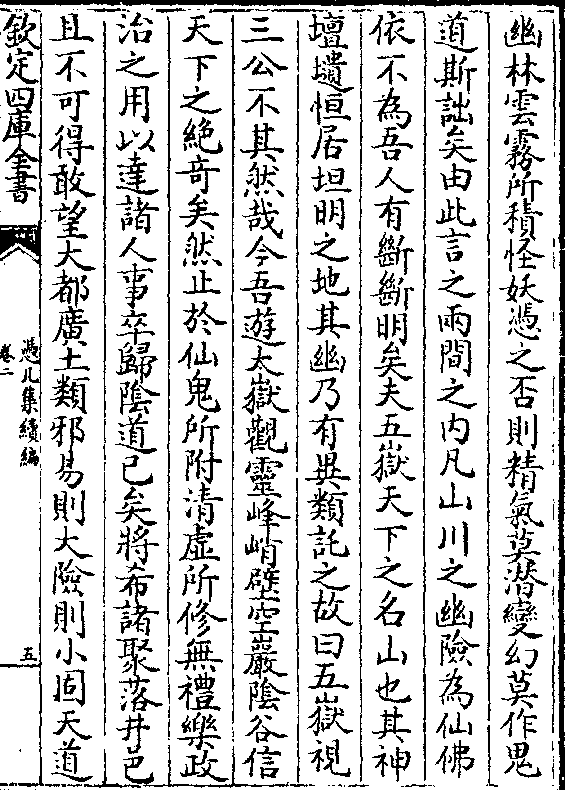 幽林雲霧所積怪妖憑之否則精氣莫潛變幻莫作鬼
道斯詘矣由此言之兩間之内凡山川之幽險為仙佛
依不為吾人有斷斷明矣夫五嶽天下之名山也其神
壇壝恒居坦明之地其幽乃有異類託之故曰五嶽視
三公不其然哉今吾遊太嶽觀靈峰峭壁空巖陰谷信
天下之絶奇矣然止於仙鬼所附清虛所修無禮樂政
治之用以達諸人事卒歸陰道已矣將希諸聚落井邑
且不可得敢望大都廣土類邪易則大險則小固天道
欽定四庫全書
憑几集續編
卷二
五